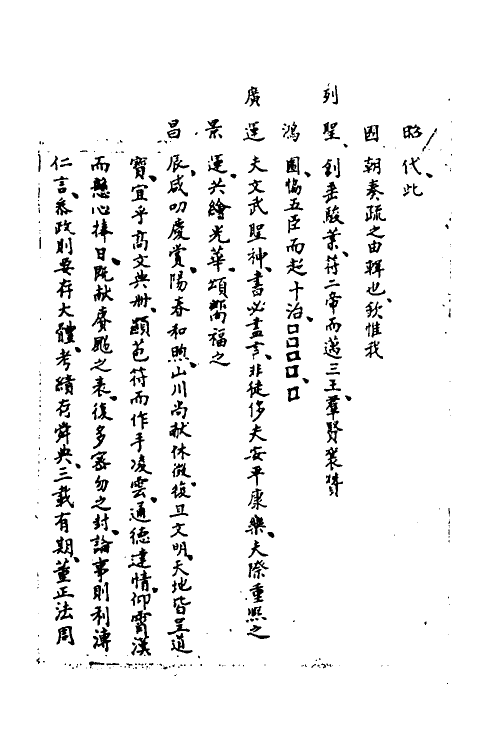 昭代此
國朝奏疏之由輯也欽惟我
列聖創垂駿業符二帝而邁三王羣賢襄贊
鴻圖恊五臣而起十治□□□□□
廣運夫文武聖神書必盡言非徒侈夫安平康樂夫際重熙之
景運共繪光華頌嚮福之
昌辰咸叨慶賞陽春和煦山川尚献休徵復旦文明天地皆呈道
寶宜乎高文典册顯苞符而作手凌雲通德達情仰霄漢
而懸心捧日既献賡颺之表復多密勿之封論事則利溥
仁言叅政則要存大體考績存舜典三載有期董正法周